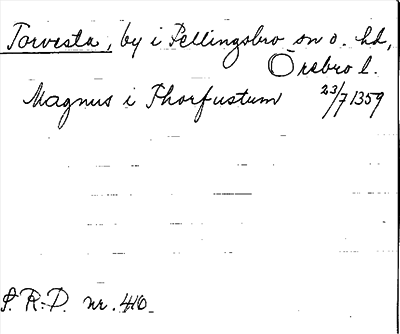 Torvesta, by i Fellingsbro sn o. hd,
Örebro l.
Magnus i Thorfustum 23/7 1359
S. R. P. nr. 410.